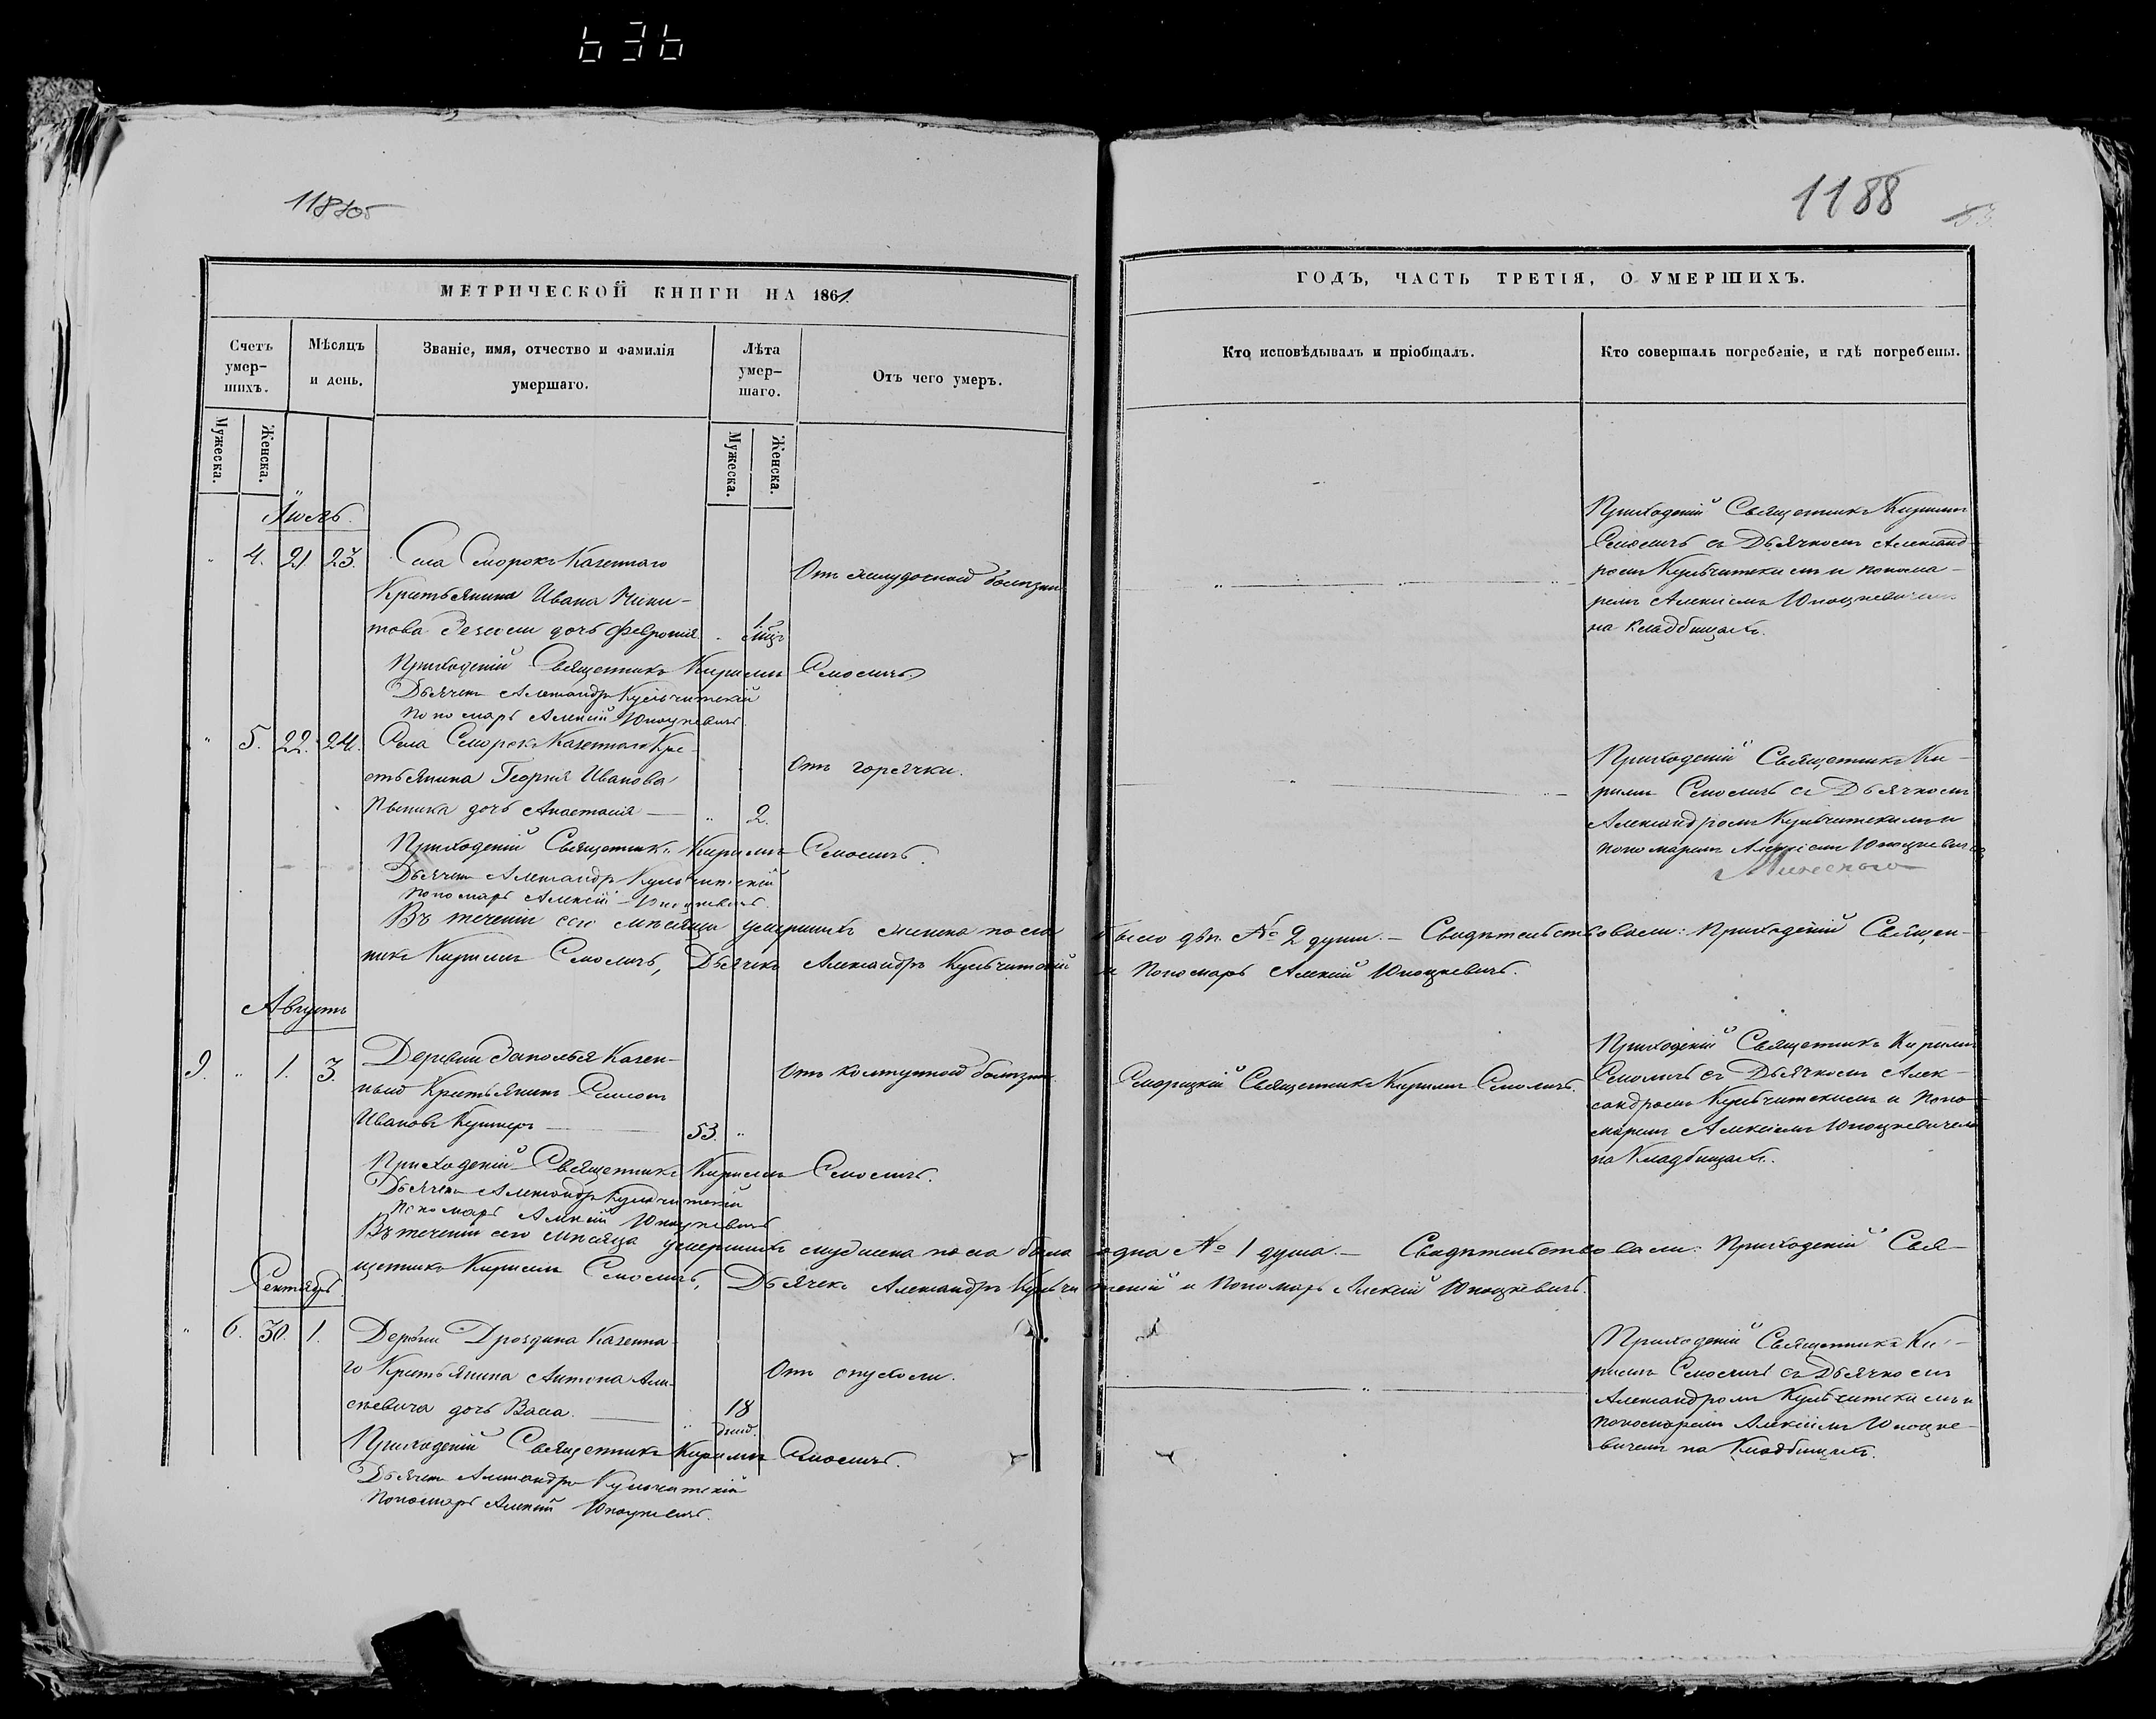 636
1187об
1188
МЕТРИЧЕСКОЙ КНИГИ НА 1861
ГОДЪ, ЧАСТЬ ТРЕТІЯ, О УМЕРШИХЪ.
Счетъ умер-шихъ.
Мѣсяцъ и день.
Званіе, имя, отчество и фамилія умершаго.
Лѣта умер-шаго.
Отъ чего умеръ.
Кто исповѣдывалъ и пріобщалъ.
Кто совершалъ погребеніе, и гдѣ погребены.
Мужеска.
Женска.
Мужеска.
Женска.
Іюль.
4. 21. 23. Села Сморокъ Казеннаго
Крестьянина Ивана Ники-
това дочь Февронія.
1. мѣс.
Отъ желудочной болѣзни
Приходскій Священникъ Кириллъ
Смоличъ съ Дьячкомъ Александ-
ромъ Кульчитскимъ и понома-
ремъ Алексіемъ Юноцкевичемъ
на кладбищахъ.
Приходскій Священникъ Кириллъ Смоличъ
Дьячекъ Александръ Кульчитскій
Пономарь Алексій Юноцкевичъ.
5. 22. 24. Села Сморокъ Казеннаго Кре-
стьянина Георгія Иванова
дочь Анастасія — „ 2.
Отъ горячки.
Приходскій Священникъ Ки-
риллъ Смоличъ съ Дьячкомъ
Александромъ Кульчитскимъ и
пономаремъ Алексіемъ Юноцкевичемъ
Приходскій Священникъ Кириллъ Смоличъ.
Дьячекъ Александръ Кульчитскій
Пономарь Алексій Юноцкевичъ.
Въ теченіи сего мѣсяца умершихъ женска пола было двѣ № 2 души. — Свидѣтельствовали: Приходскій Священ-
никъ Кириллъ Смоличъ, Дьячекъ Александръ Кульчитскій и Пономарь Алексій Юноцкевичъ.
Августъ
9. „ 1. 3. Деревни Заполья Казен-
ный Крестьянинъ Симонъ
Ивановъ Кушнеръ — 53. „
Отъ колтунной болѣзни.
Сморицкій Священникъ Кириллъ Смоличъ.
Приходскій Священникъ Кириллъ
Смоличъ съ Дьячкомъ Алек-
сандромъ Кульчитскимъ и Поно-
маремъ Алексіемъ Юноцкевичемъ
на Кладбищахъ.
Приходскій Священникъ Кириллъ Смоличъ.
Дьячекъ Александръ Кульчитскій
Пономарь Алексій Юноцкевичъ
Въ теченіи сего мѣсяца умершихъ мужеска пола была одна № 1 душа. — Свидѣтельствовали: Приходскій Свя-
щенникъ Кириллъ Смоличъ, Дьячекъ Александръ Кульчитскій и Пономарь Алексій Юноцкевичъ.
Сентябрь
„ 6. 30. 1. Деревни Дроздина Казенна-
го Крестьянина Антона Али-
сѣевича дочь Васа. — „ 18 дней.
Отъ опухоли.
Приходскій Священникъ Ки-
риллъ Смоличъ съ Дьячкомъ
Александромъ Кульчитскимъ и
пономаремъ Алексіемъ Юноцке-
вичемъ на Кладбищахъ.
Приходскій Священникъ Кириллъ Смоличъ.
Дьячекъ Александръ Кульчитскій
Пономарь Алексій Юноцкевичъ.